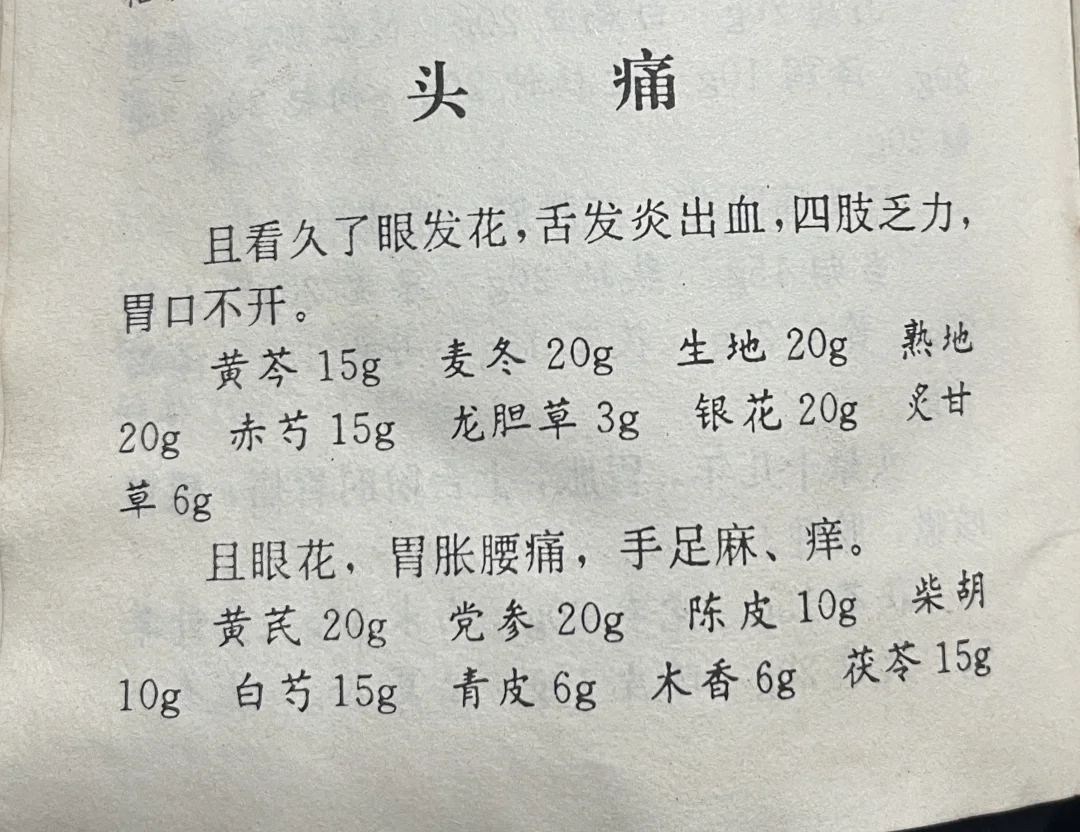 头 痛
且看久了眼发花,舌发炎出血,四肢乏力,
胃口不开。
黄芩 15g 麦冬 20g 生地 20g 熟地
20g 赤芍 15g 龙胆草 3g 银花 20g 炙甘
草 6g
且眼花, 胃胀腰痛, 手足麻、痒。
黄芪 20g 党参 20g 陈皮 10g 柴胡
10g 白芍 15g 青皮 6g 木香 6g 茯苓 15g